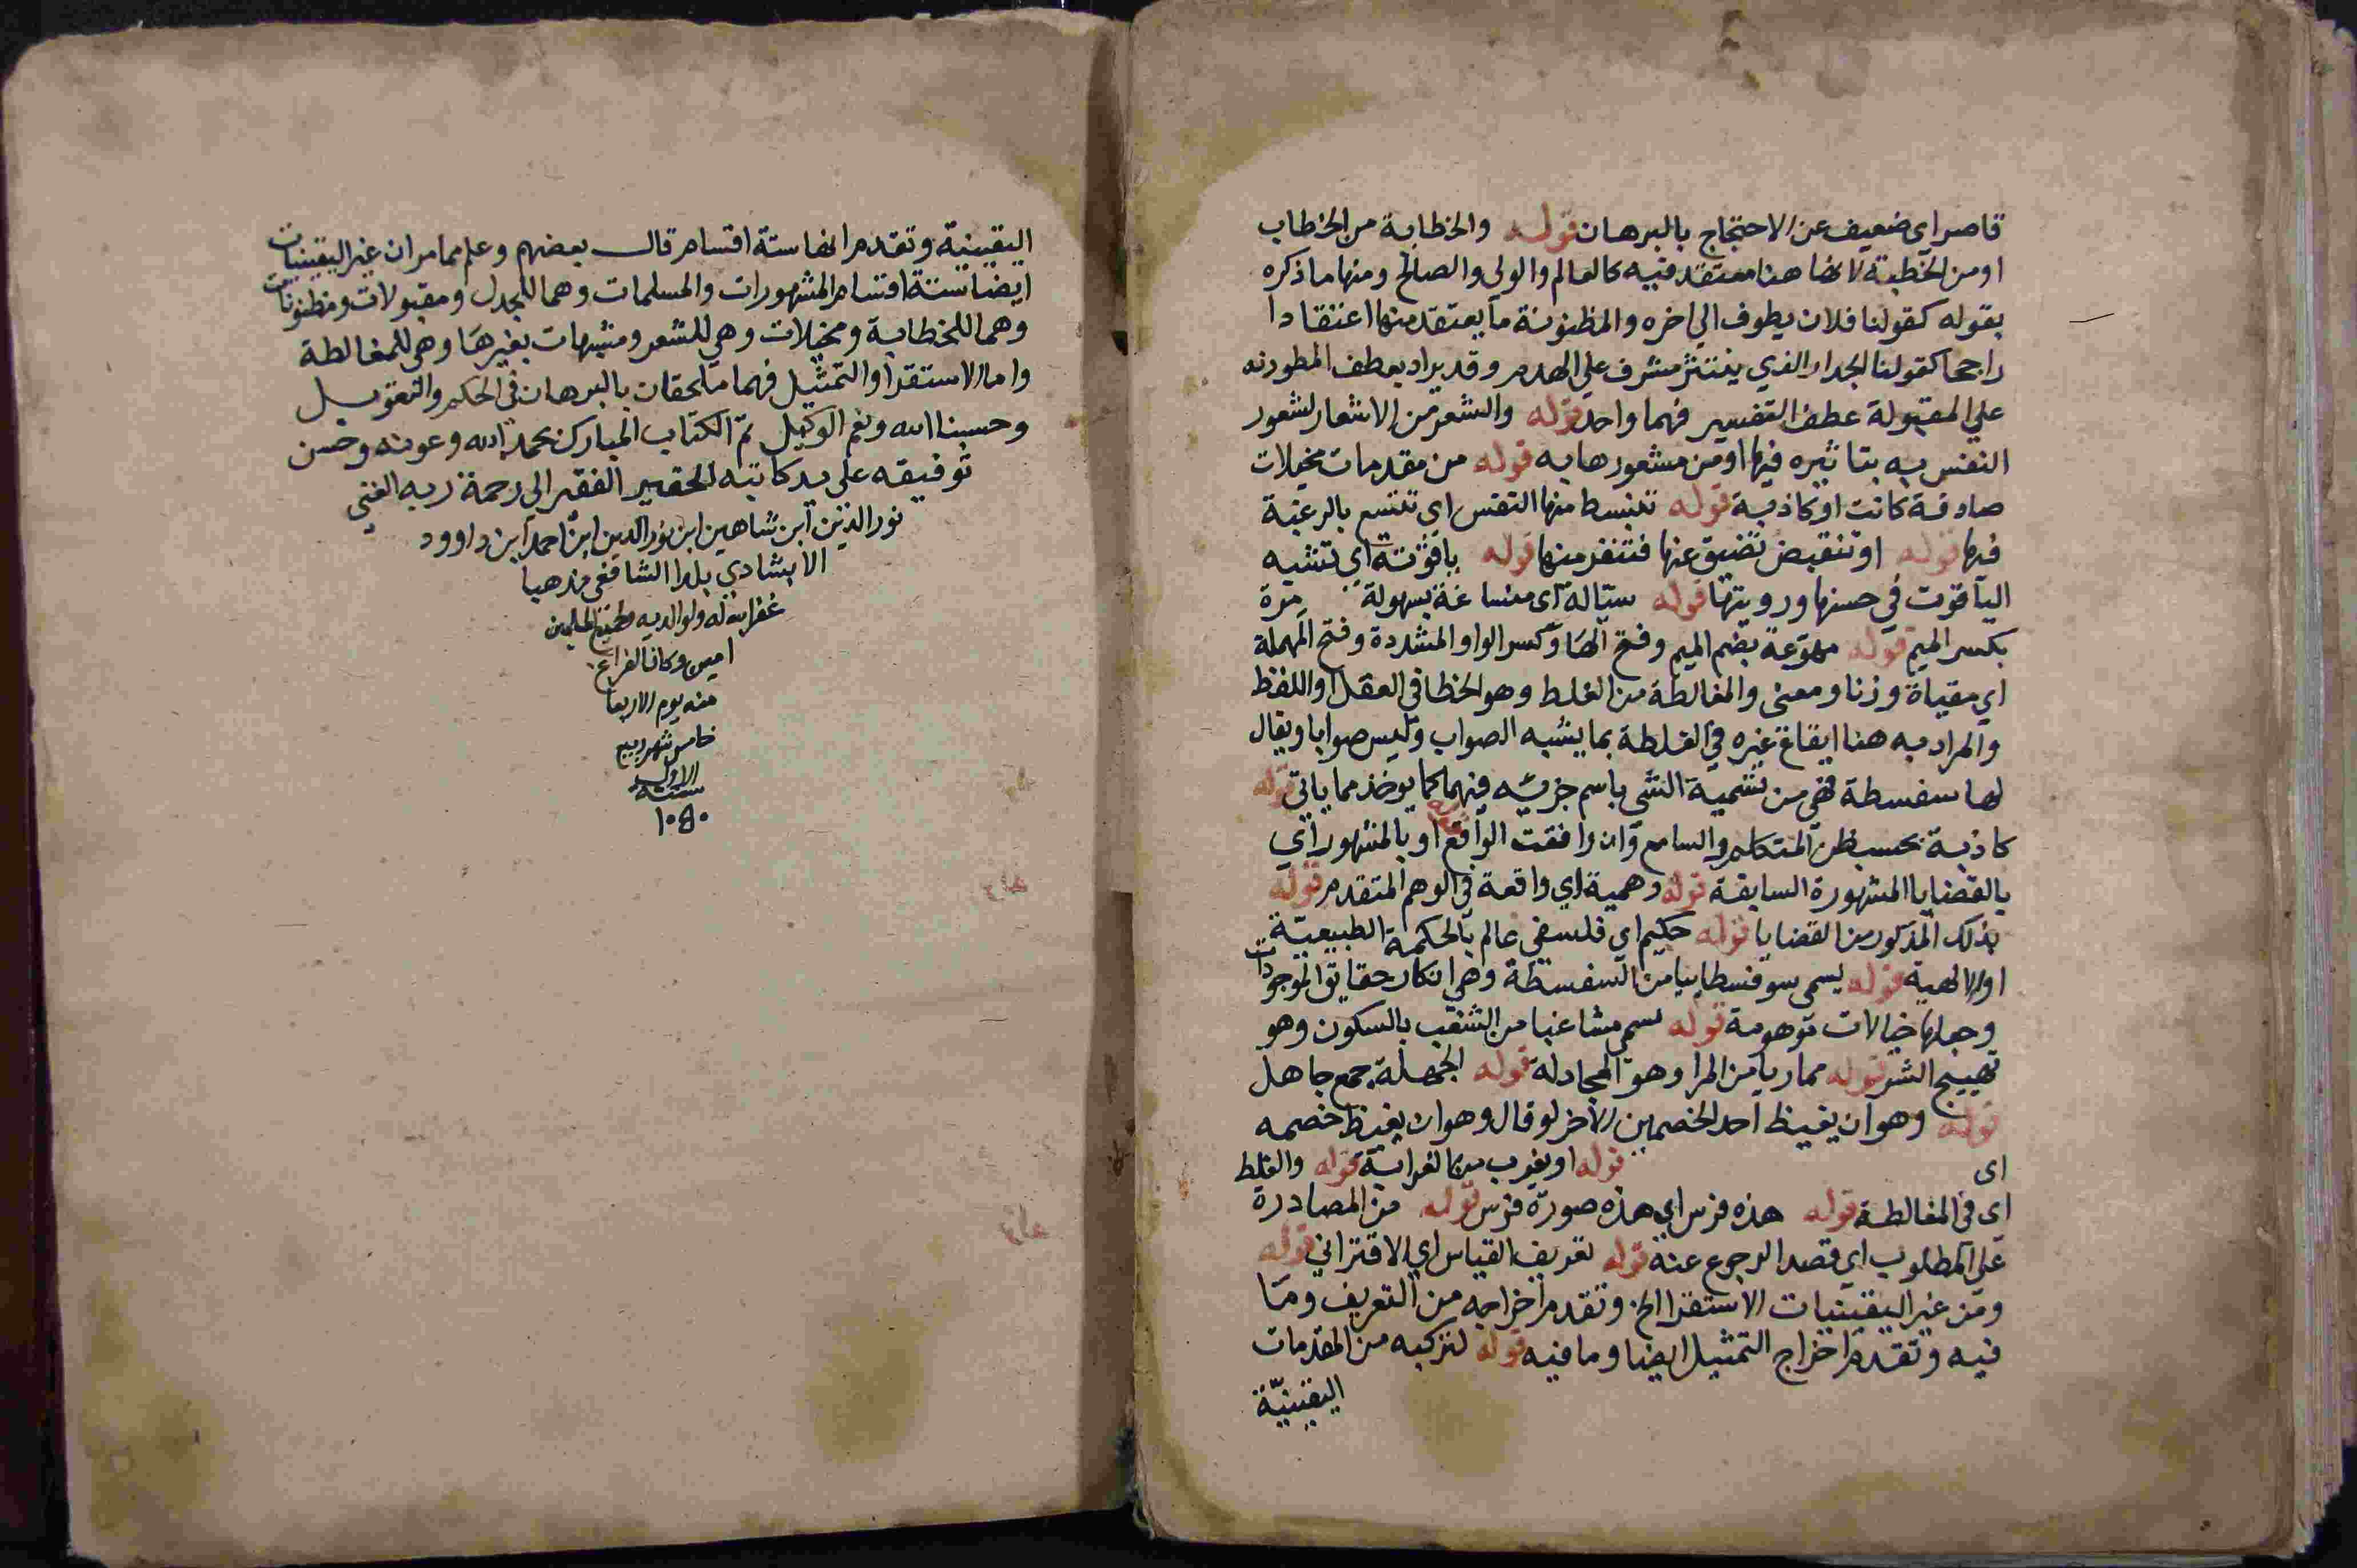 قاصر اي ضعيف عن الاحتجاج بالبرهان قوله والخطابة من الخطاب
او من الخطبة لانها هنا معتقد فيه كالعالم والولي والصالح ومنها ما ذكره
بقوله كقولنا فلان يطوف الي اخره والمظنونة ما يعتقد منها اعتقادا
راجحا كقولنا الجدار الذي ينتثر مشرف علي الهدم وقد يراد بعطف المظنونه
علي المقبولة عطف التفسير فهما واحد قوله والشعر من الاشعار لشعور
النفس به بتاثيره فيها او من مشعورها به قوله من مقدمات مخيلات
صادقة كانت او كاذبة قوله تنبسط منها النفس اي تتسع بالرغبة
فيها قوله او تنقبض تضيق عنها فتنفر منها قوله ياقوتة اي تشبه
الياقوت في حسنها ورويتها قوله سيالة اي منساغة بسهولة مرة
بكسر الميم قوله مهوّعة بضم الميم وفتح الها وكسر الواو المشددة وفتح المهملة
اي مقياة وزنا ومعنى والمغالطة من الغلط وهو الخطا في العقل او اللفظ
والمراد به هنا ايقاع غيره في الغلطة بما يشبه الصواب وليس صوابا ويقال
لها سفسطة فهي من تسمية الشي باسم جزئيه فيهما كما يوخذ مما ياتي قوله
كاذبة بحسب ظن المتكلم والسامع وان وافقت الواقع قوله او بالمشهور اي
بالقضايا المشهورة السابقة قوله وهمية اي واقعة في الوهم المتقدم قوله
بذلك المذكور من القضايا قوله حكيم اي فلسفي عالم بالحكمة الطبيعيّة
او الالهية قوله يسمى سوفسطاييا من السفسطة وهي انكار حقايق الموجودات
وجعلها خيالات موهومة قوله سمي مشاغبا من الشغب بالسكون وهو
تهييج الشر قوله مماريا من المرا وهو المجادلة قوله الجهلة جمع جاهل
قوله وهو ان يغيظ احد الخصمين الاخر لو قال وهو ان يغيظ خصمه
اي قوله او يغرب من الغرابة قوله والغلط
اى في المغالطة قوله هذه فرس اي هذه صورة فرس قوله من المصادرة
على المطلوب اي قصد الرجوع عنه قوله تعريف القياس اي الاقتراني قوله
ومن غير اليقينيات الاستقرا الخ وتقدم اخراجه من التعريف وما
فيه وتقدم اخراج التمثيل ايضا وما فيه قوله لتركبه من المقدمات
اليقينيّة
اليقينية وتقدم انها ستة اقسام قال بعضهم وعلم مما مر ان غير اليقينيات
ايضا ستة اقسام المشهورات والمسلمات وهما للجدل ومقبولات ومظنونات
وهما للخطابة ومخيلات وهي للشعر ومشبهات بغيرها وهي للمغالطة
واما الاستقرا والتمثيل فهما ملحقات بالبرهان في الحكم والتعويل
وحسبنا الله ونعم الوكيل تم الكتاب المبارك بحمد الله وعونه وحسن
توفيقه على يد كاتبه الحقير الفقير الي رحمة ربه الغني
نور الدين ابن شاهين ابن نور الدين ابن احمد ابن داوود
الابشادي بلدا الشافعي مذهبا
غفر الله له ولوالديه ولجميع المسلمين
امين وكان الفراغ
منه يوم الاربعا
خامس شهر ربيع
الاول
سنة
١٠٥٠